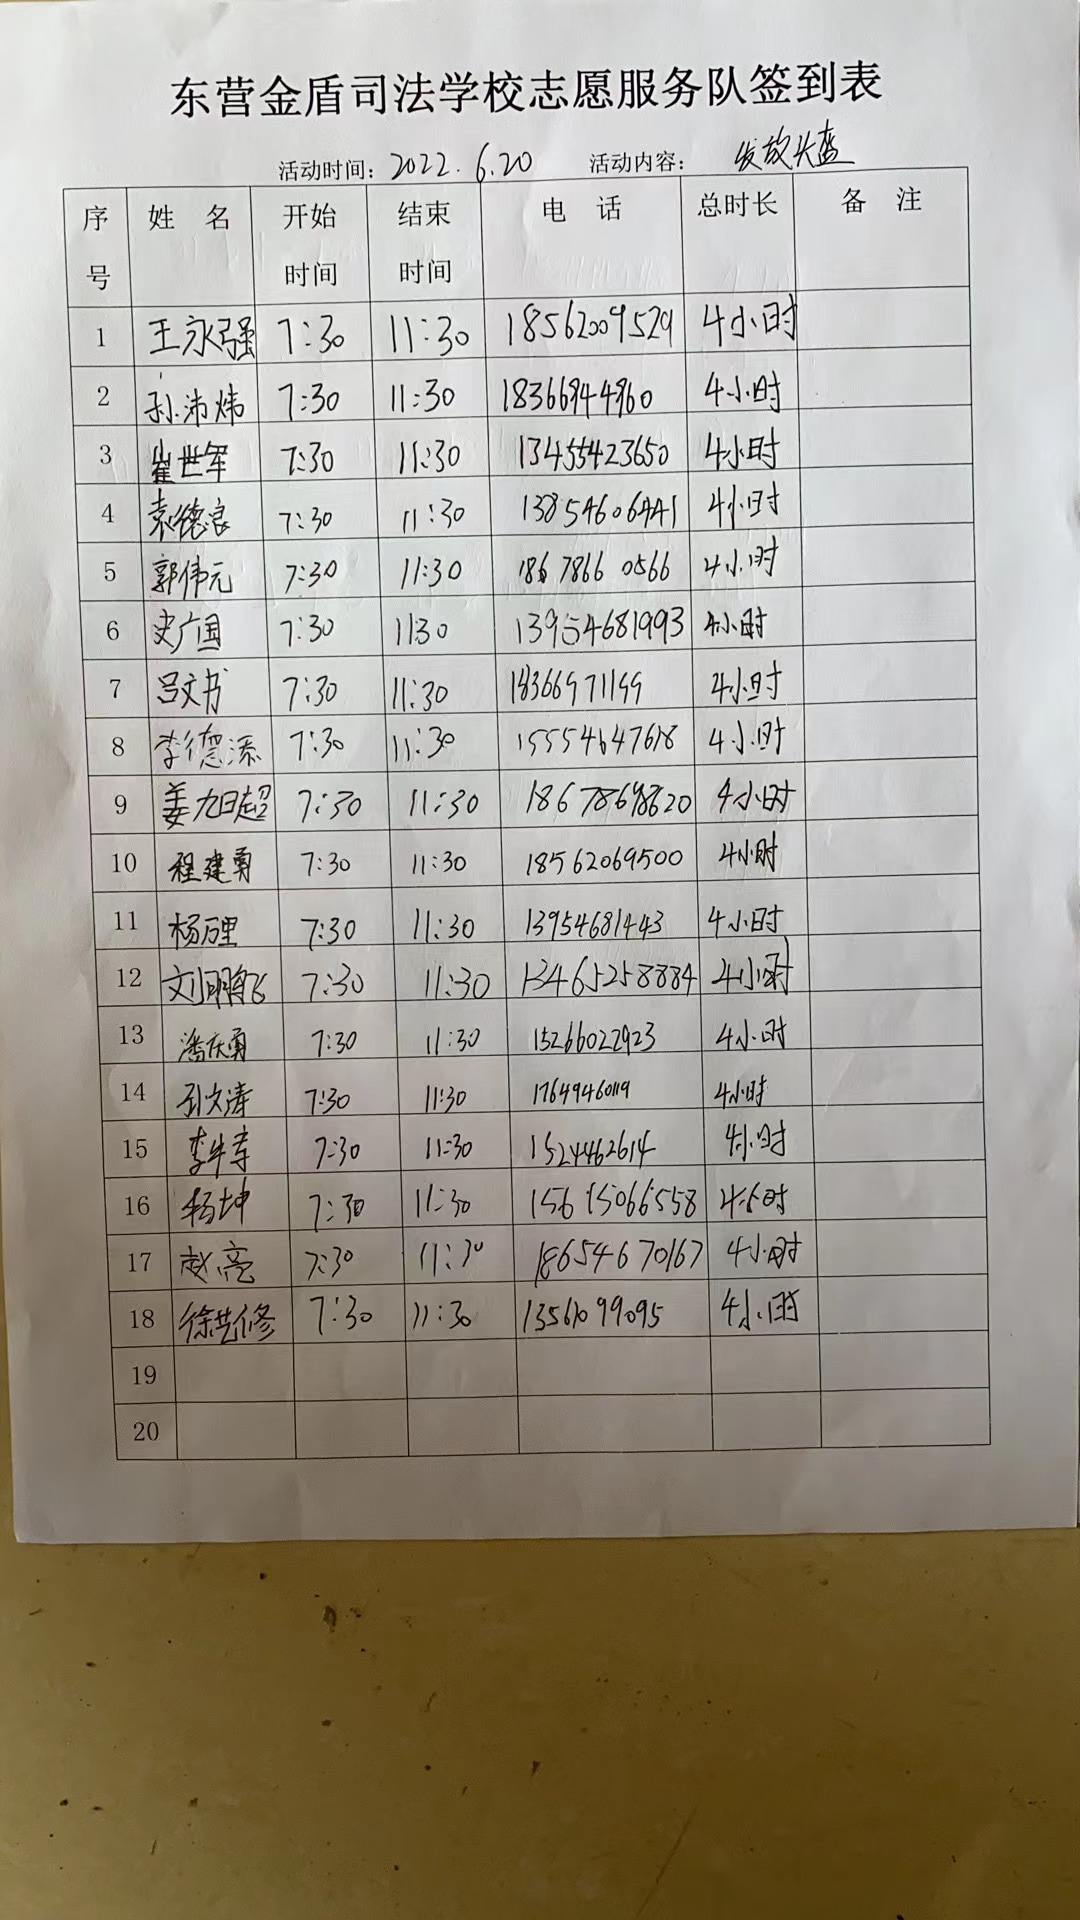 东营金盾司法学校志愿服务队签到表
活动时间：2022.6.20 活动内容：发放头盔
序号 姓 名 开始时间 结束时间 电 话 总时长 备 注
1 王永强 7:30 11:30 18562009529 4小时
2 孙沛炜 7:30 11:30 18366944960 4小时
3 崔世军 7:30 11:30 13455423650 4小时
4 袁德良 7:30 11:30 13854606441 4小时
5 郭伟元 7:30 11:30 186 7866 0566 4小时
6 史广国 7:30 1130 13954681993 4小时
7 吕文书 7:30 11:30 18366971199 4小时
8 李德添 7:30 11:30 15554647618 4小时
9 姜旭超 7:30 11:30 18678698620 4小时
10 程建勇 7:30 11:30 18562069500 4小时
11 杨万里 7:30 11:30 13954681443 4小时
12 刘鹏飞 7:30 11:30 13465258884 4小时
13 潘庆勇 7:30 11:30 15266022923 4小时
14 孙文涛 7:30 11:30 17649460119 4小时
15 李 7:30 11:30 1524462614 4小时
16 杨坤 7:30 11:30 15615066558 4小时
17 赵亮 7:30 11:30 18654670167 4小时
18 徐先修 7:30 11:30 13561099095 4小时
19
20